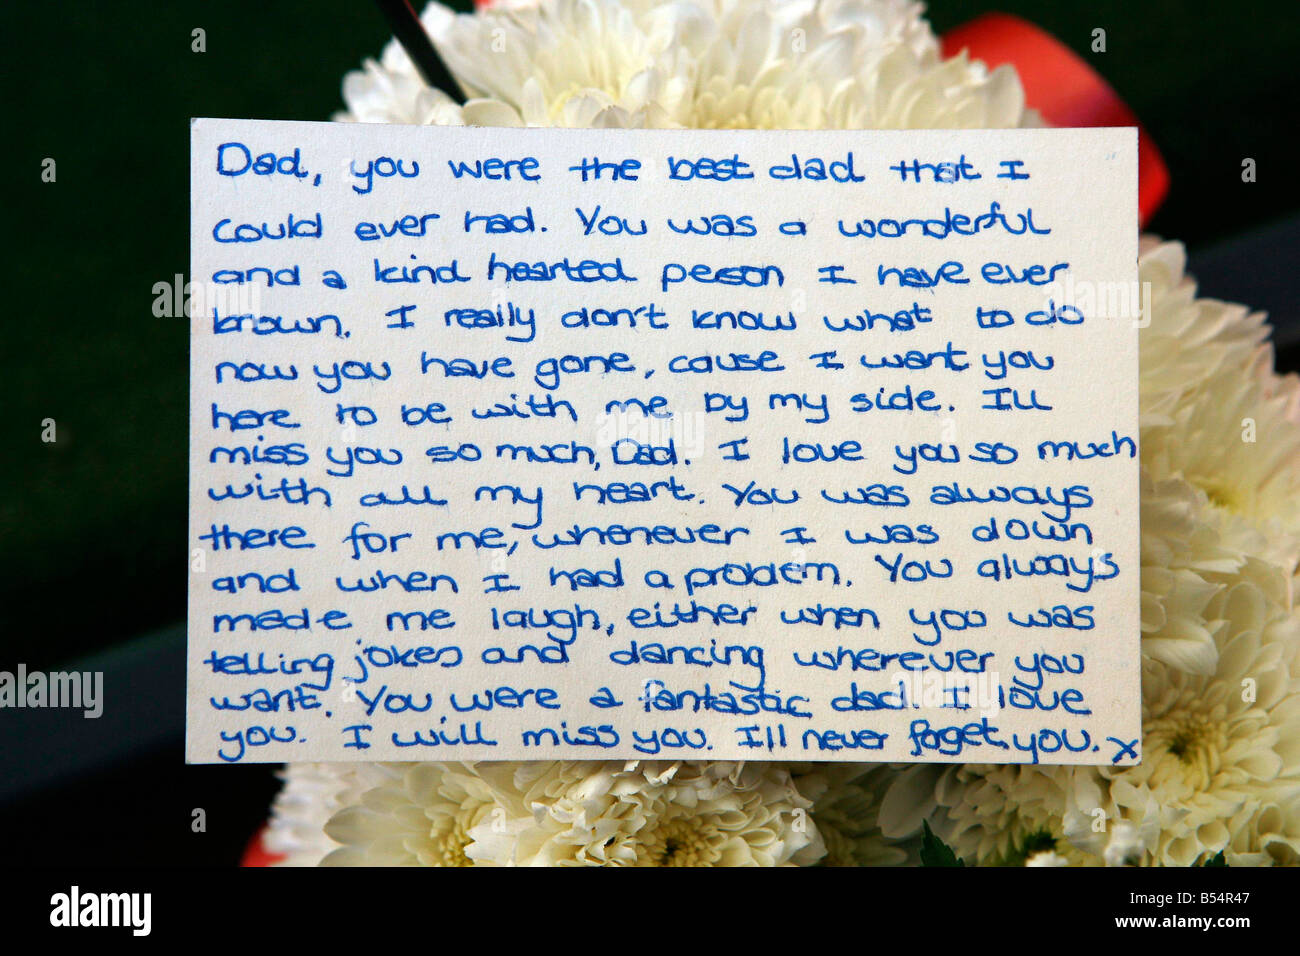 Dad, you were the best dad that I
could ever had. You was a wonderful
and a kind hearted person I have ever
known. I really don't know what to do
now you have gone, cause I want you
here to be with me by my side. I'll
miss you so much, Dad. I love you so much
with all my heart. You was always
there for me, whenever I was down
and when I had a problem. You always
made me laugh, either when you was
telling jokes and dancing wherever you
want. You were a fantastic dad. I love
you. I will miss you. I'll never forget you. x
a
a
a
a
a
a
a
a
a
a
alamy
alamy
alamy
alamy
Image ID: B54R47
www.alamy.com